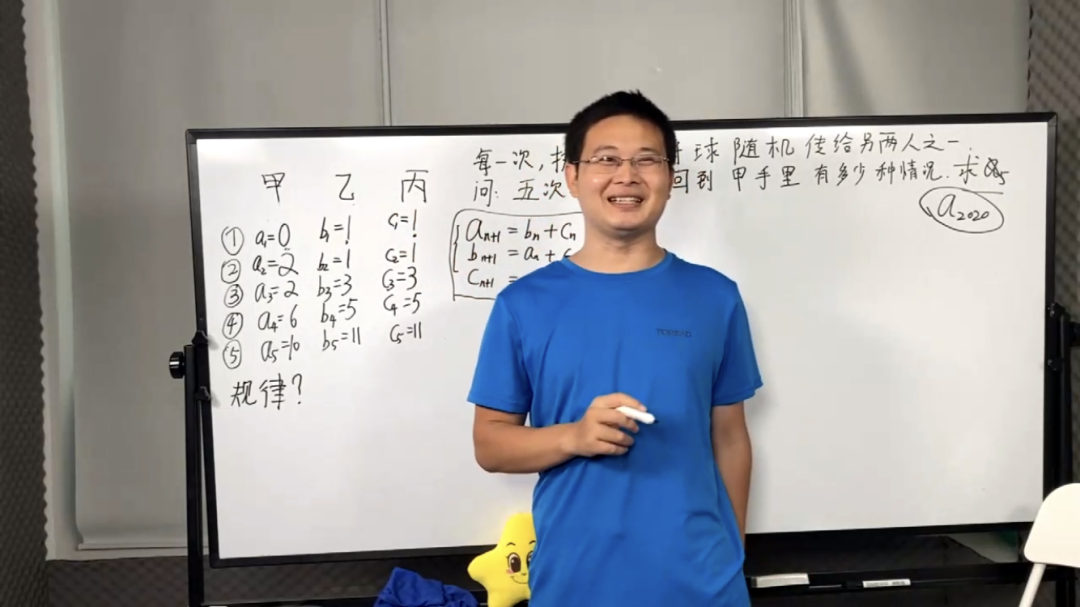 每一次,
球随机传给另两人之一.
问:五次
回到甲手里有多少种情况.求
a₂₀₂₀
甲 乙 丙
① a₁=0 b₁=1 c₁=1
② a₂=2 b₂=1 c₂=1
③ a₃=2 b₃=3 c₃=3
④ a₄=6 b₄=5 c₄=5
⑤ a₅=10 b₅=11 c₅=11
规律?
aₙ₊₁ = bₙ + cₙ
bₙ₊₁ = aₙ +
cₙ₊₁ =